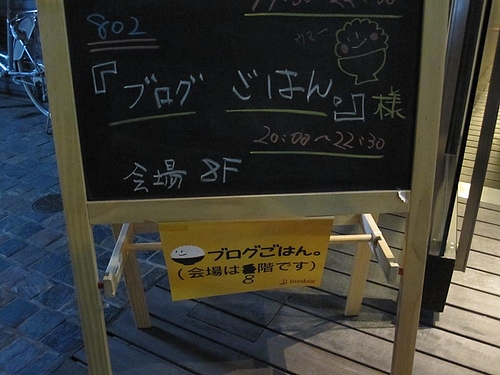 802
『ブログ ごはん。』様
20:00〜22:30
会場 8F
ブログごはん。
(会場は 階です)
8
livedoor